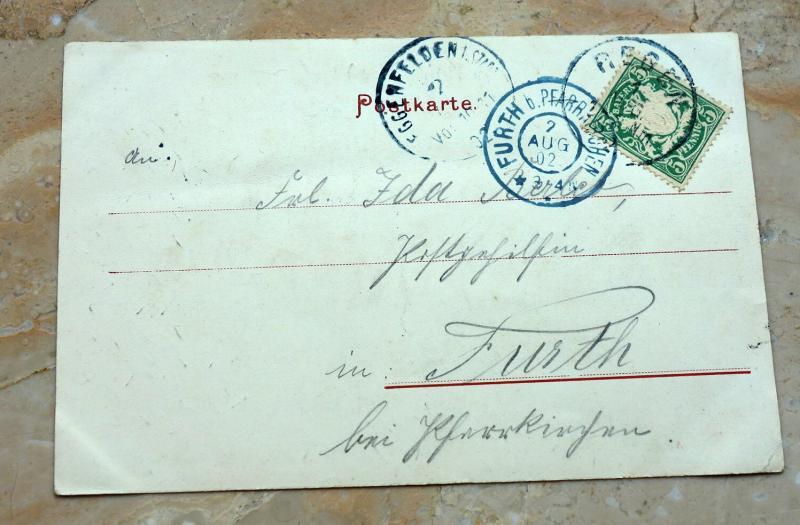 Postkarte.
GGENFELDEN 1. STADT
7
VORM
02
FURTH b. PFARRKIRCHEN
7
AUG
02
BAYERN
5 5
PFENNIG
An:
Frl. Ida
Postgehilfin
in Furth
bei Pfarrkirchen